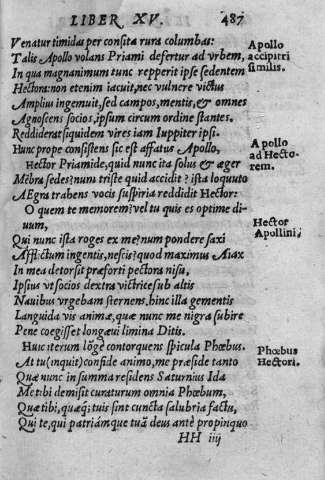 LIBER XV. 487
Venatur timidas per consita rura columbas:
Talis Apollo volans Priami defertur ad vrbem,
In qua magnanimum tunc repperit ipse sedentem
Hectora: non etenim iacuit, nec vulnere victus
Amplius ingemuit, sed campos, mentis, & omnes
Agnoscens socios, ipsum circum ordine stantes.
Reddiderat siquidem vires iam Iuppiter ipsi.
Hunc prope consistens sic est affatus Apollo,
Hector Priamide, quid nunc ita solus & æger
Mẽbra sedes? num triste quid accidit? ista loquuto
AEgra trahens vocis suspiria reddidit Hector:
O quem te memorem? vel tu quis es optime di-
uum,
Qui nunc ista roges ex me? num pondere saxi
Afflictum ingentis, nescis? quod maximus Aiax
In mea detorsit præforti pectora nisu,
Ipsius vt socios dextra victrice sub altis
Nauibus vrgebam sternens, hinc illa gementis
Languida vis animæ, quæ nunc me nigra subire
Pene coegisset longæui limina Ditis.
Huic iterum lõgè contorquens spicula Phœbus.
At tu (inquit) confide animo, me præside tanto
Quæ nunc in summa residens Saturnius Ida
Me tibi demisit curaturum omnia Phœbum,
Quæ tibi, quæq; tuis sint cuncta salubria factu,
Qui te, qui patriámque tuã dens antè propinquo
HH iiij
Apollo
accipitri
similis.
Apollo
ad Hecto-
rem.
Hector
Apollini,
Phœbus
Hectori.